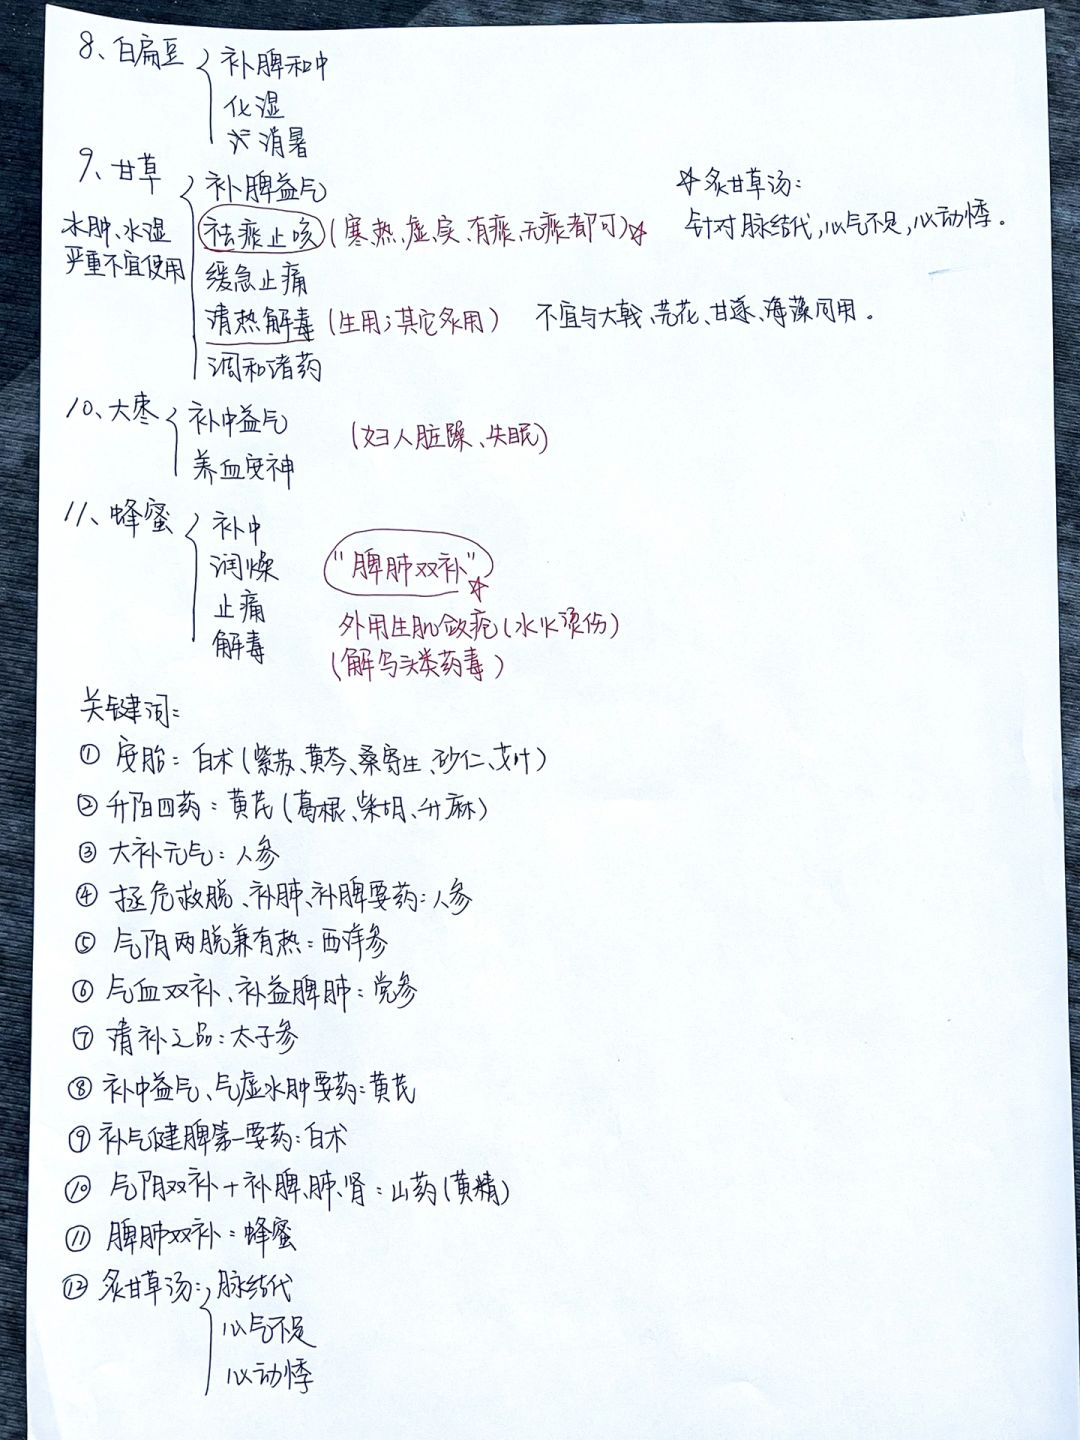 8、白扁豆 补脾和中
化湿
消暑
9、甘草 补脾益气
水肿、水湿严重不宜使用
祛痰止咳(寒、热、虚、实、有痰、无痰都可)☆
缓急止痛
清热解毒(生用;其它炙用)
调和诸药
☆炙甘草汤:
针对脉结代,心气不足,心动悸。
不宜与大戟、芫花、甘遂、海藻同用。
10、大枣 补中益气
养血安神
(妇人脏躁、失眠)
11、蜂蜜 补中
润燥
止痛
解毒
"脾肺双补"☆
外用生肌敛疮(水火烫伤)
(解乌头类药毒)
关键词:
① 安胎:白术(紫苏、黄芩、桑寄生、砂仁、艾叶)
② 升阳四药:黄芪(葛根、柴胡、升麻)
③ 大补元气:人参
④ 拯危救脱、补肺、补脾要药:人参
⑤ 气阴两脱兼有热:西洋参
⑥ 气血双补、补益脾肺:党参
⑦ 清补之品:太子参
⑧ 补中益气、气虚水肿要药:黄芪
⑨ 补气健脾第一要药:白术
⑩ 气阴双补+补脾、肺、肾:山药(黄精)
⑪ 脾肺双补:蜂蜜
⑫ 炙甘草汤: 脉结代
心气不足
心动悸